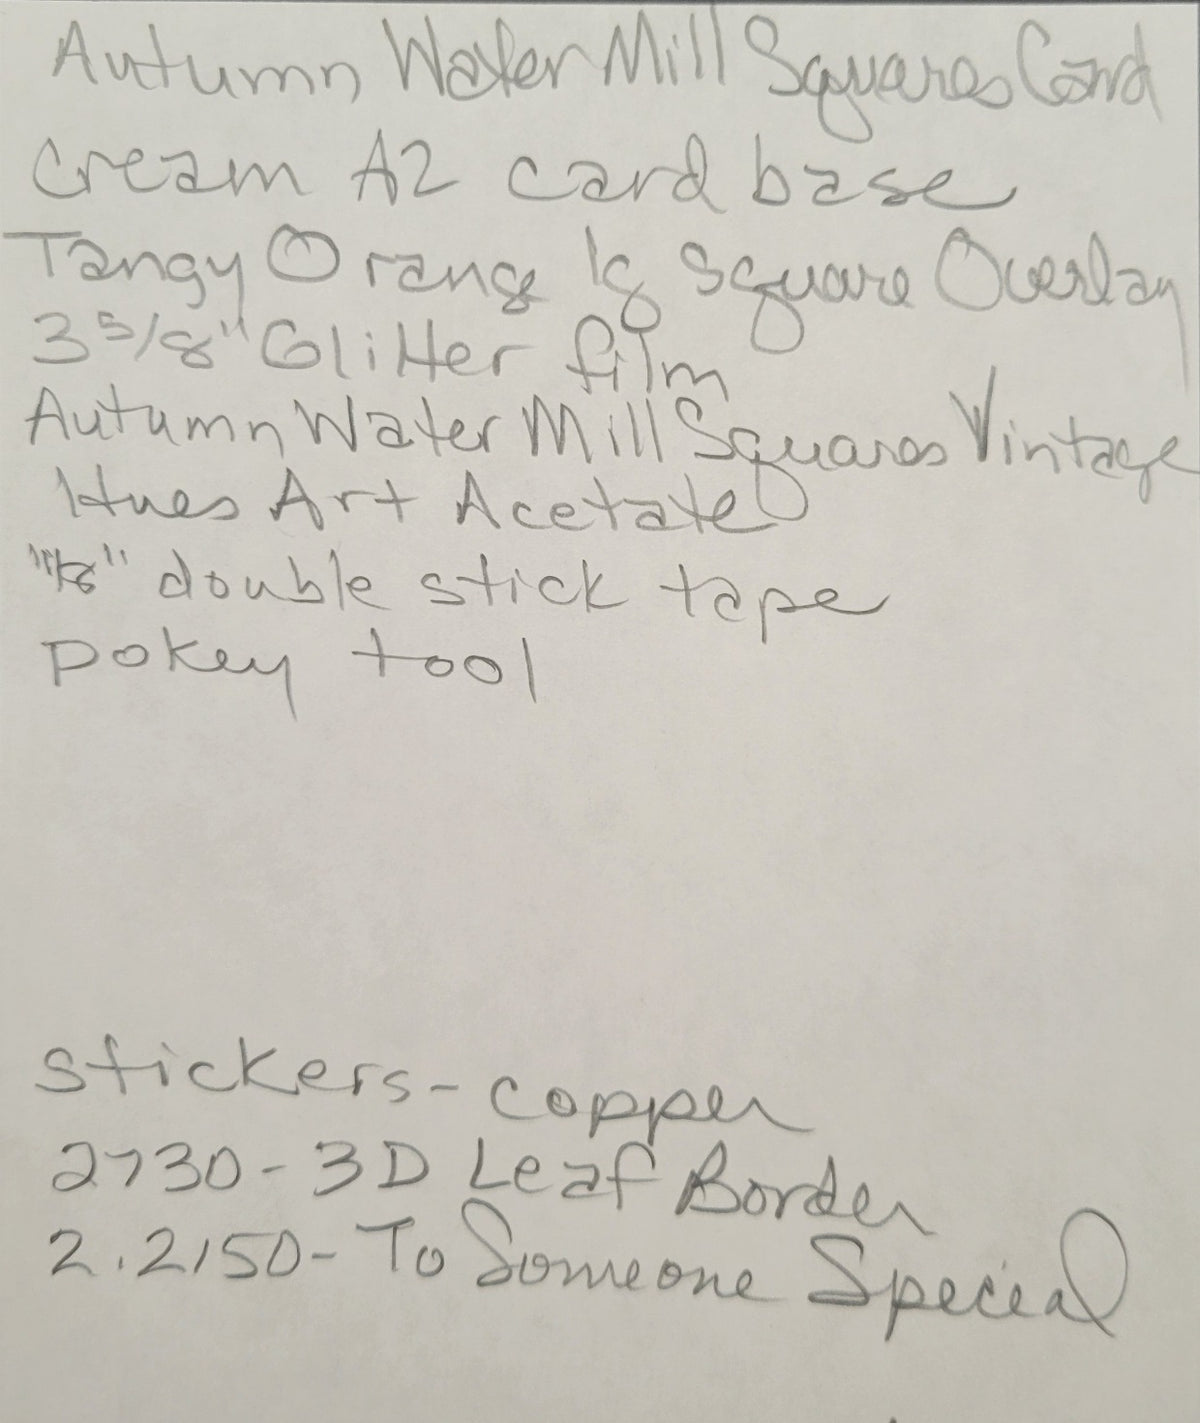 Autumn Water Mill Squares Card
Cream A2 card base
Tangy Orange lg Square Overlay
3 5/8" Glitter film
Autumn Water Mill Squares Vintage
Hues Art Acetate
1/8" double stick tape
pokey tool
stickers- copper
2730- 3D Leaf Border
2.2150- To Someone Special